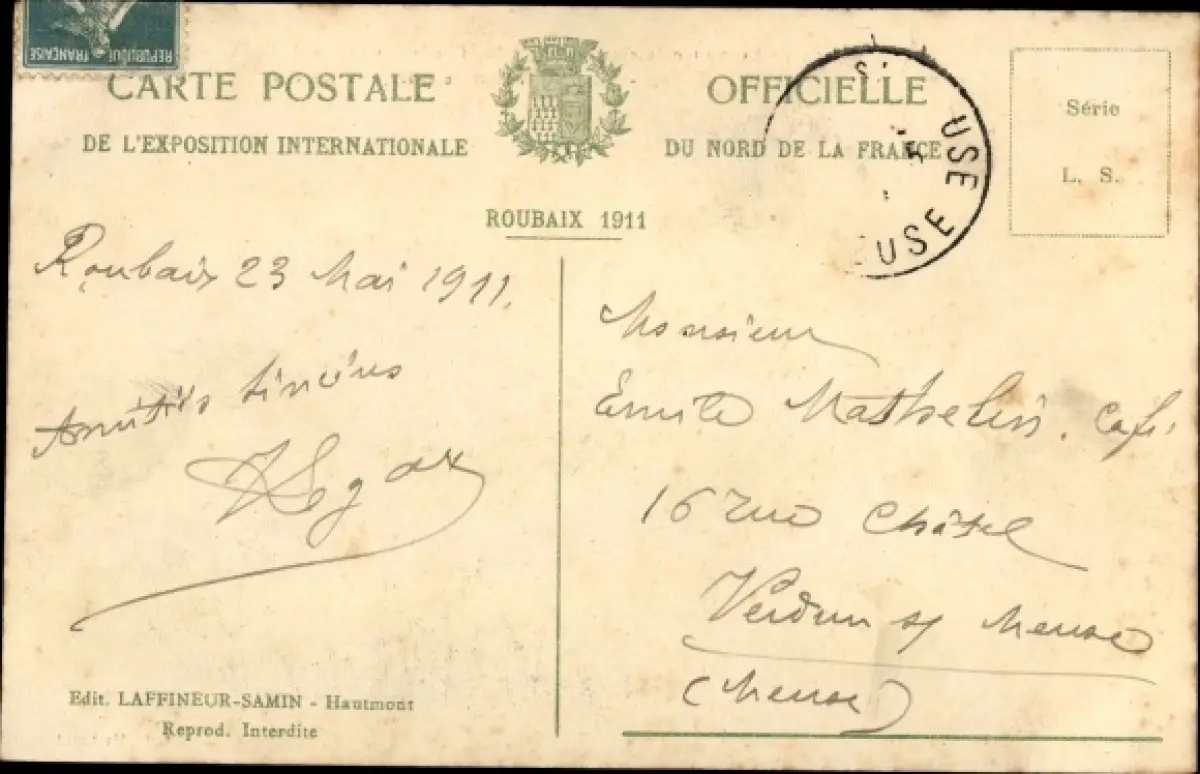 REPUBLIQUE FRANÇAISE
CARTE POSTALE OFFICIELLE
DE L'EXPOSITION INTERNATIONALE DU NORD DE LA FRANCE
ROUBAIX 1911
Série
L. S.
USE
EUSE
Roubaix 23 Mai 1911.
Amitiés sincères
Monsieur
Emile Mathelin. Caf.
16 rue Châtel
Verdun s/ Meuse
(Meuse)
Edit. LAFFINEUR-SAMIN - Hautmont
Reprod. Interdite